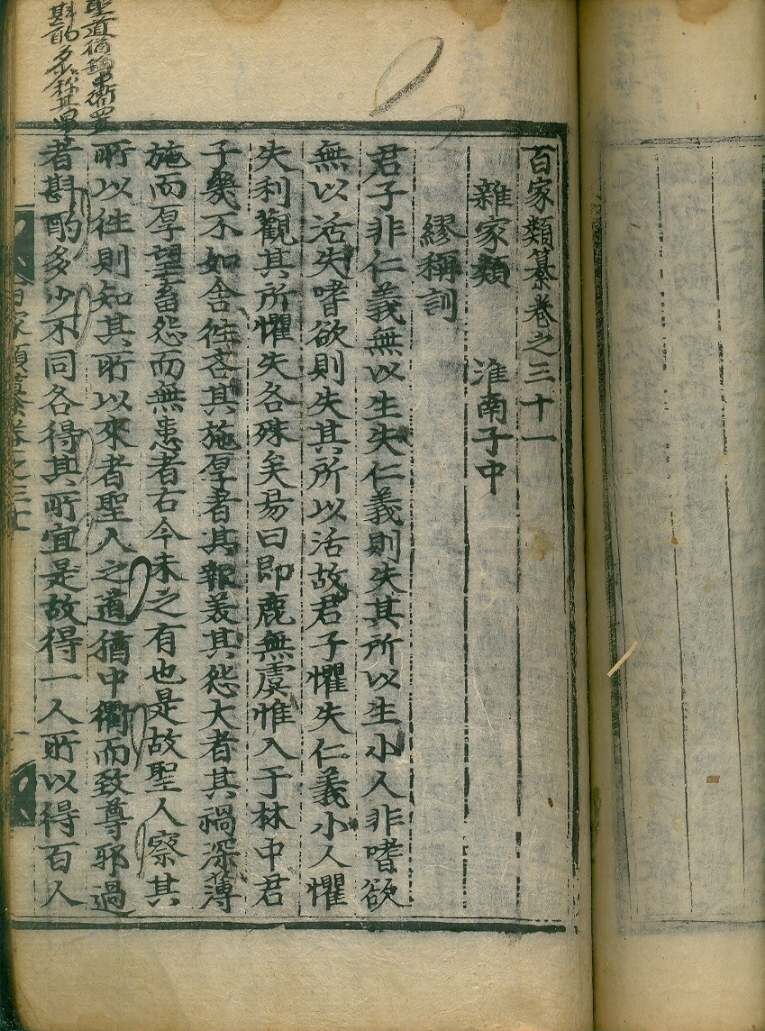 百家類纂卷之三十一
雜家類　淮南子中
繆稱訓
君子非仁義無以生失仁義則失其所以生小人非嗜欲
無以活失嗜欲則失其所以活故君子懼失仁義小人懼
失利觀其所懼失各殊矣易曰即鹿無虞惟入于林中君
子幾不如舍徃吝其施厚者其報美其怨大者其禍深薄
施而厚望畜怨而無患者右今未之有也是故聖人察其
所以徃則知其所以來者聖人之道猶中衢而致尊邪過
者斟酌多少不同各得其所宜是故得一人所以得百人
百家類纂卷之三十一
聖道猶衢置
斟酌多